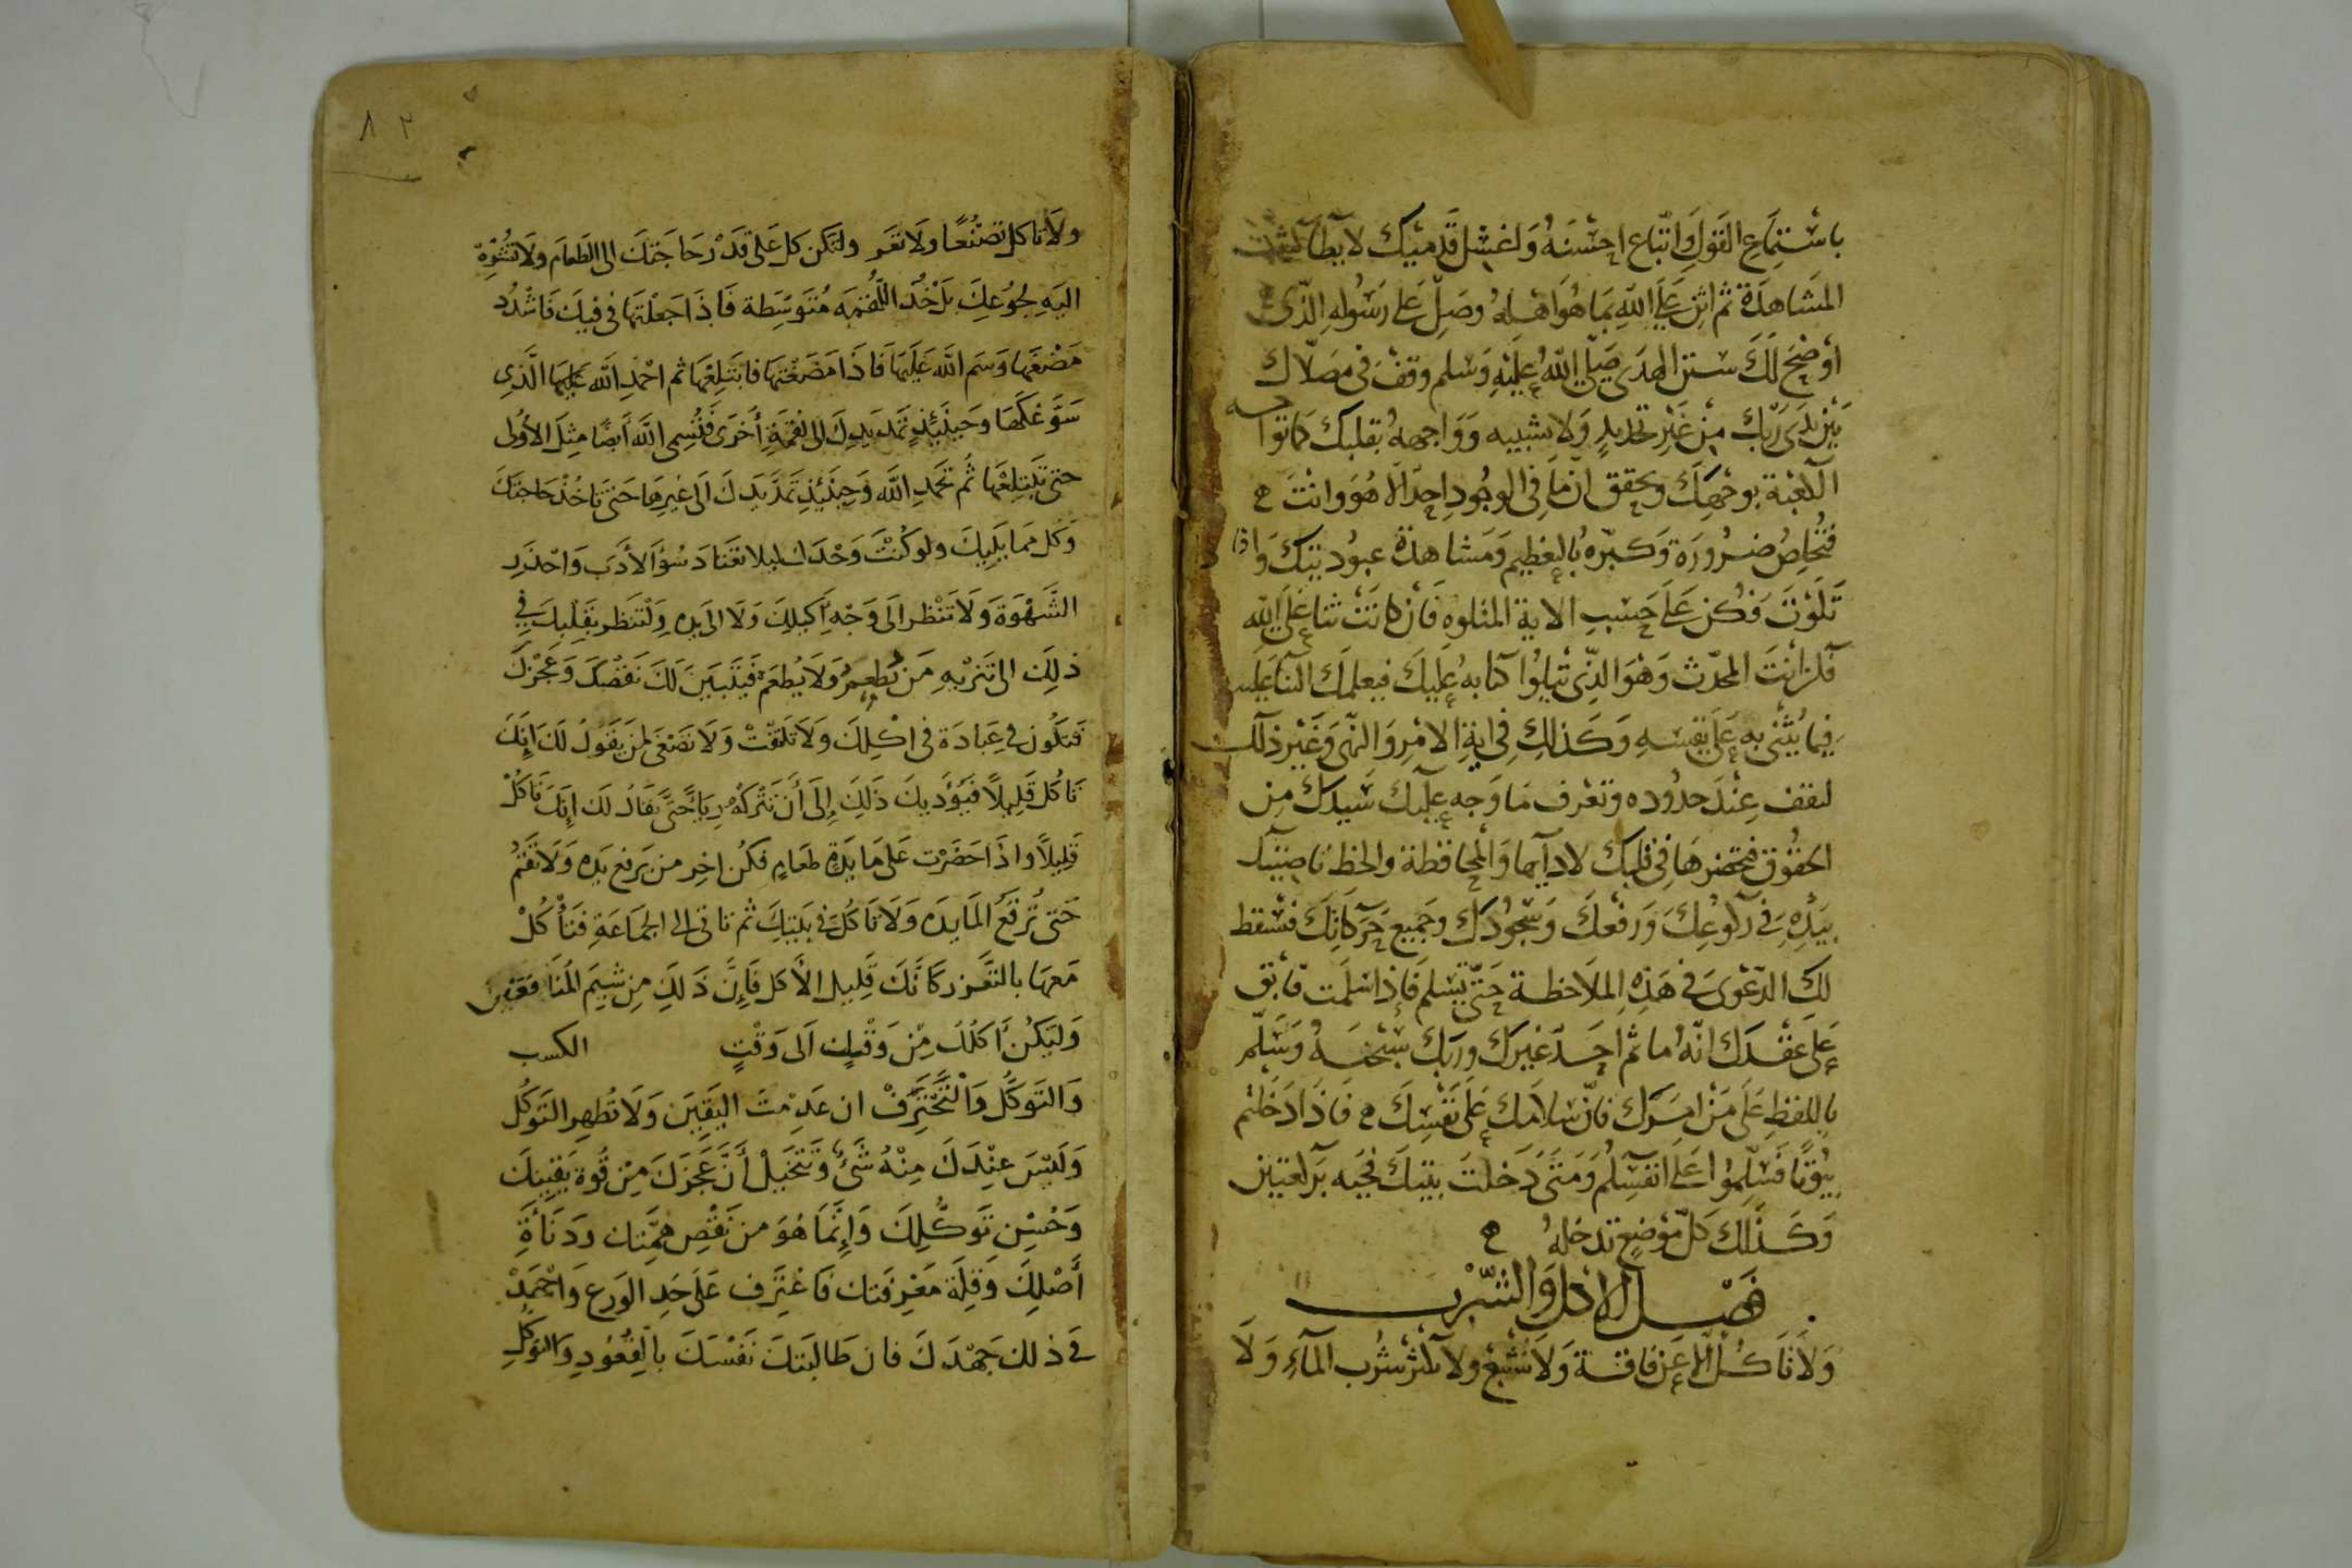 باستماع القول واتباع احسنه واغسل قدميك لا يطا
المشاهدة ثم اثن على الله بما هو اهله وصل على رسوله الذي
اوضح لك سنن الهدى صلى الله عليه وسلم وقف في مصلاك
بين يدي ربك من غير تحديد ولا تشبيه وواجهه بقلبك كما تواجه
الكعبة بوجهك وتحقق ان ما في الوجود احد الا هو وانت
فتخلص ضرورة وكبره بالتعظيم ومشاهدة عبوديتك واذا
تلوت فكن على حسب الاية المتلوه فان كانت ثنا على الله
فكن انت المحدث وهو الذي تتلوا كتابه عليك فيعلمك الثنا عليه
فيما يثني به على نفسه وكذلك في اية الامر والنهى وغير ذلك
لتقف عند حدوده وتعرف ما وجه عليك سيدك من
الحقوق فتحضرها في قلبك لادايها والمحافظة والحظ ناصيتك
بيده في ركوعك ورفعك وسجودك وجميع حركاتك فتسقط
لك الدعوى في هذه الملاحظة حتى تسلم فاذا سلمت فابق
على عقدك انه ما ثم احد غيرك وربك سبحنه وسلم
باللفظ على من امرك فان سلامك على نفسك فاذا دخلتم
بيوتا فسلموا على انفسكم ومتى دخلت بيتك فحيه بركعتين
وكذلك كل موضع تدخله
فصل الاكل والشرب
ولا تاكل الا عن فاقة ولا تشبع ولا تكثر شرب الماء ولا
٨٢
ولا تاكل تصنعا ولا تقر ولتكن كل على قدر حاجتك الى الطعام ولا تشوه
اليه لجوعك بل خذ اللقمه متوسطة فاذا جعلتها في فيك فاشدد
مضغها وسم الله عليها فاذا مضغتها فابتلعها ثم احمد الله عليها الذي
سوغكها وحينئذ تمد يدك الى لقمة أخرى فتسمى الله أيضا مثل الأولى
حتى تبتلعها ثم تحمد الله وحينئذ تمد يدك الى غيرها حتى تاخذ حاجتك
وكل مما يليك ولو كنت وحدك ليلا تعتاد سؤ الأدب واحذر
الشهوة ولا تنظر الى وجه أكيلك ولا الى يده ولتنظر بقلبك في
ذلك الى تنزيه من يطعم ولا يطعم فيتبين لك نقصك وعجزك
فتكون في عبادة في اكلك ولا تلتفت ولا تصغى لمن يقول لك انك
تاكل قليلا فيؤديك ذلك إلى أن تتركه رياء حتى يقال لك إنك تاكل
قليلا واذا حضرت على مايدة طعام فكن اخر من يرفع يده ولا تقم
حتى ترفع المايده ولا تاكل في بيتك ثم تاتي الى الجماعة فتأكل
معها بالتعزز كانك قليل الأكل فإن ذلك من شيم المنافقين
وليكن أكلك من وقت الى وقت الكسب
والتوكل والتحترف ان عدمت اليقين ولا تظهر التوكل
وليس عندك منه شئ وتتخيل أن عجزك من قوة يقينك
وحسن توكلك وإنما هو من نقص همتك ودنائة
أصلك وقلة معرفتك فاغترف على حد الورع واجهد
في ذلك جهدك فان طالبتك نفسك بالقعود والتوكل